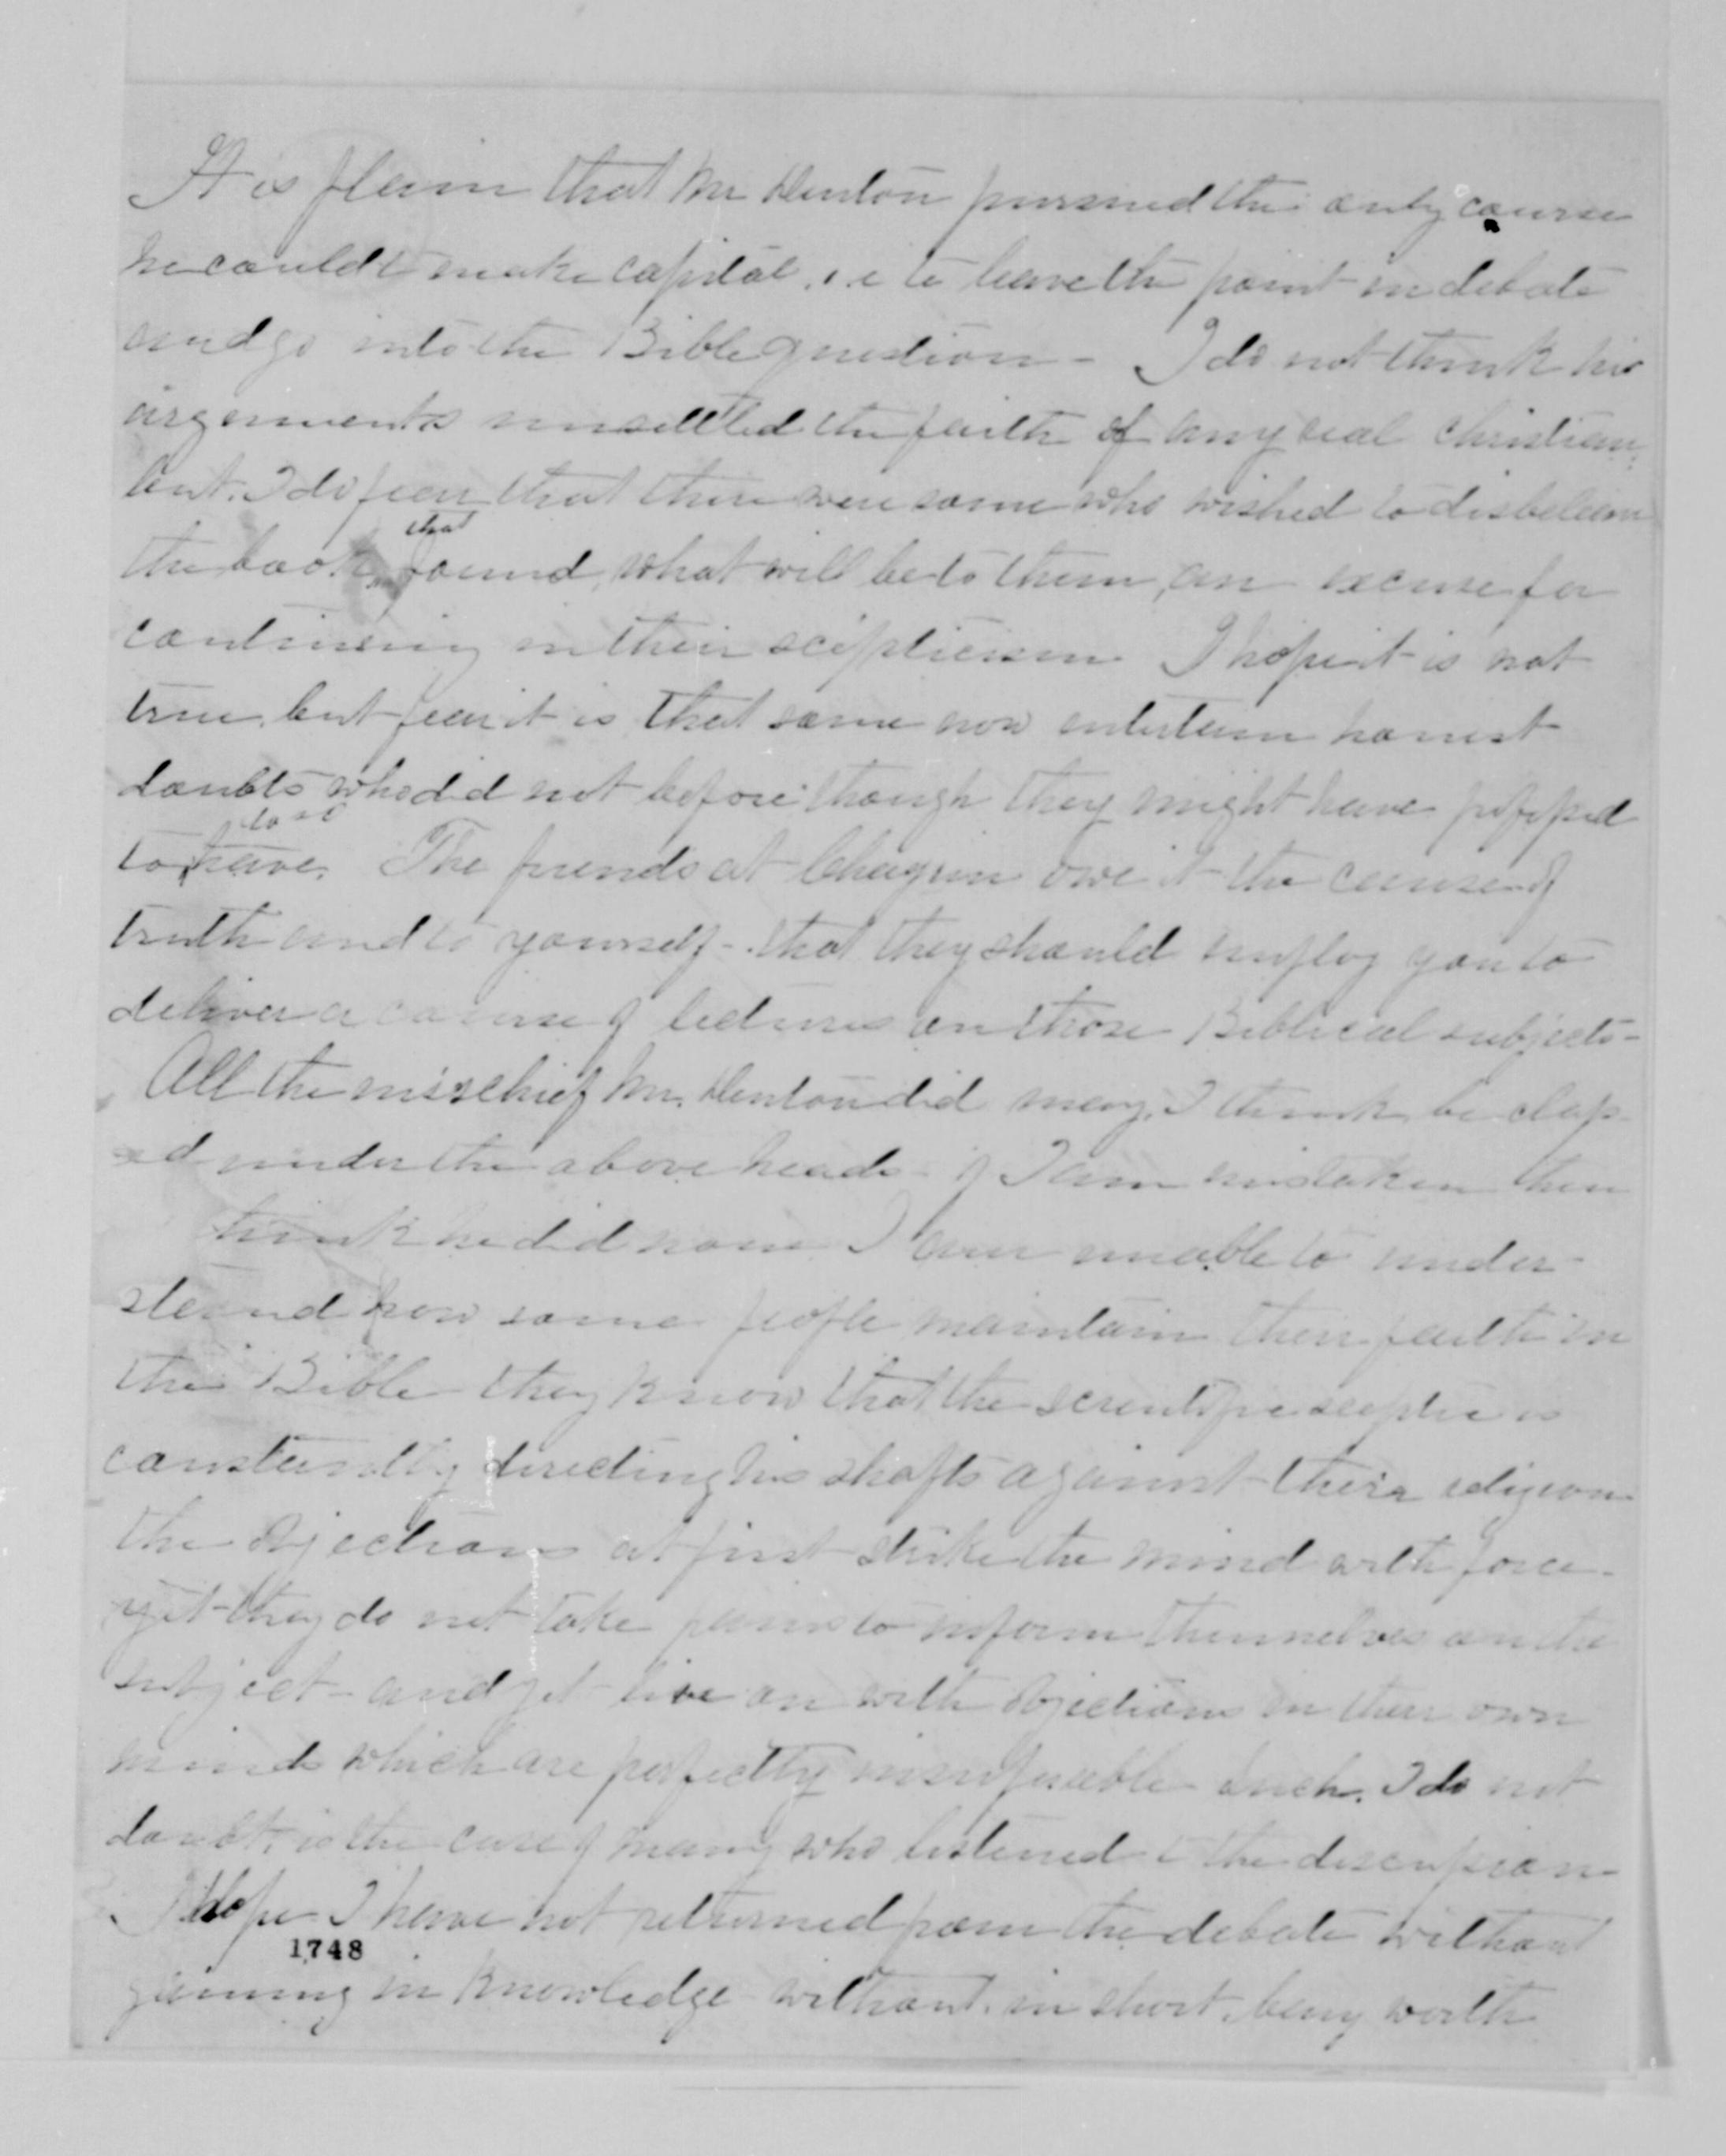 It is plain that Mr Denton pursued the only course
he could to make capital. i.e to leave the point in debate
and go into the Bible question - I do not think his
arguments unsettled the faith of any real christian,
but. I do fear that there were some who wished to disbelieve
the book that found, what will be to them, an excuse for
continuing in their scepticism I hope it is not
true, but fear it is that some now entertain honest
doubts who did not before though they might have professed
to have. The friends at Chagrin owe it the cause of
truth and to yourself - that they should employ you to
deliver a course of lectures on those Biblical subjects -
All the mischief Mr. Denton did may, I think, be class-
ed under the above heads - if I am mistaken then
think he did none. I am unable to under-
stand how some people maintain their faith in
the Bible - they know that the scientific sceptic is
constantly directing his shafts against their religion
the objections at first strike the mind with force -
yet they do not take pains to inform themselves on the
subject - and yet live on with objections in their own
minds which are perfectly unanswerable Such, I do not
doubt, is the case of many who listened to the discussion
I Hope I have not returned from the debate without
1748
gaining in knowledge without, in short, being worth